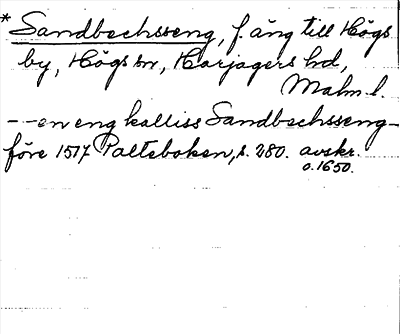 * Sandbechsseng, f. äng till Högs
by, Högs sn, Harjagers hd,
Malm. l.
- - en eng kalliss Sandbechsseng -
före 1517 Palteboken, s. 280. avskr.
o. 1650.